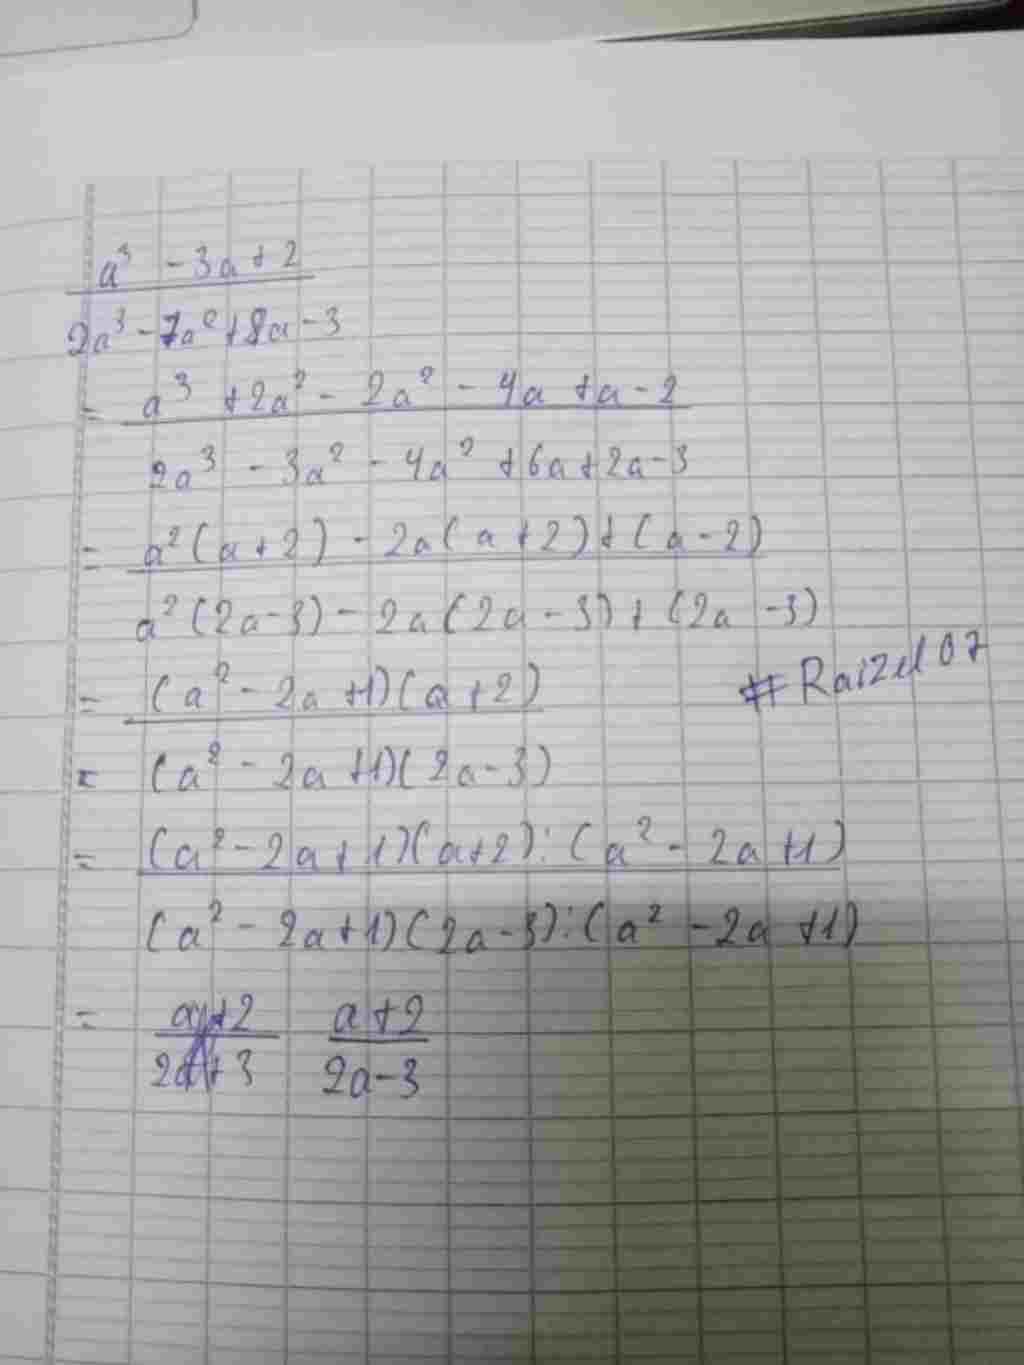 a³ - 3a + 2
2a³ - 7a² + 8a - 3
= a³ + 2a² - 2a² - 4a + a - 2
2a³ - 3a² - 4a² + 6a + 2a - 3
= a²(a + 2) - 2a(a + 2) + (a - 2)
a²(2a - 3) - 2a(2a - 3) + (2a - 3)
= (a² - 2a + 1)(a + 2)
#Raizel07
= (a² - 2a + 1)(2a - 3)
= (a² - 2a + 1)(a + 2) : (a² - 2a + 1)
(a² - 2a + 1)(2a - 3) : (a² - 2a + 1)
= a + 2
2a - 3